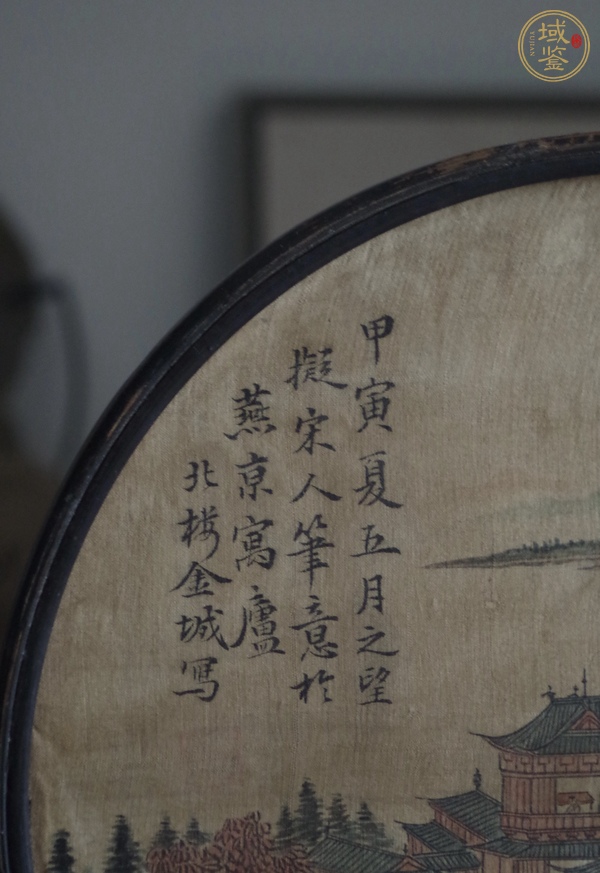 甲寅夏五月之望
擬宋人筆意於
燕京寓廬
北楼金城写
域鉴
YUJIAN